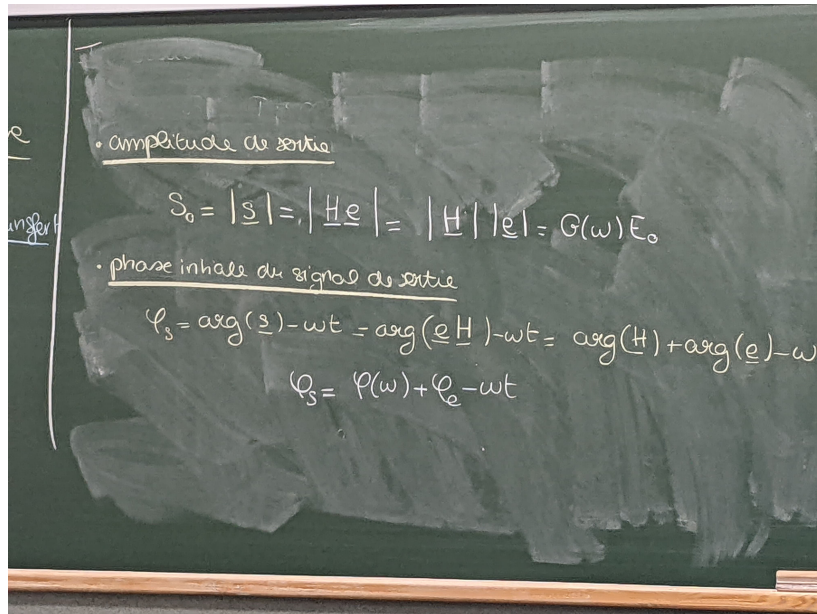 e
ansfert
• amplitude de sortie
S₀ = |s̲| = |H̲ e̲| = |H̲| |e̲| = G(ω) E₀
• phase initiale du signal de sortie
φₛ = arg(s̲) - ωt = arg(e̲ H̲) - ωt = arg(H̲) + arg(e̲) - ω
φₛ = φ(ω) + φₑ - ωt